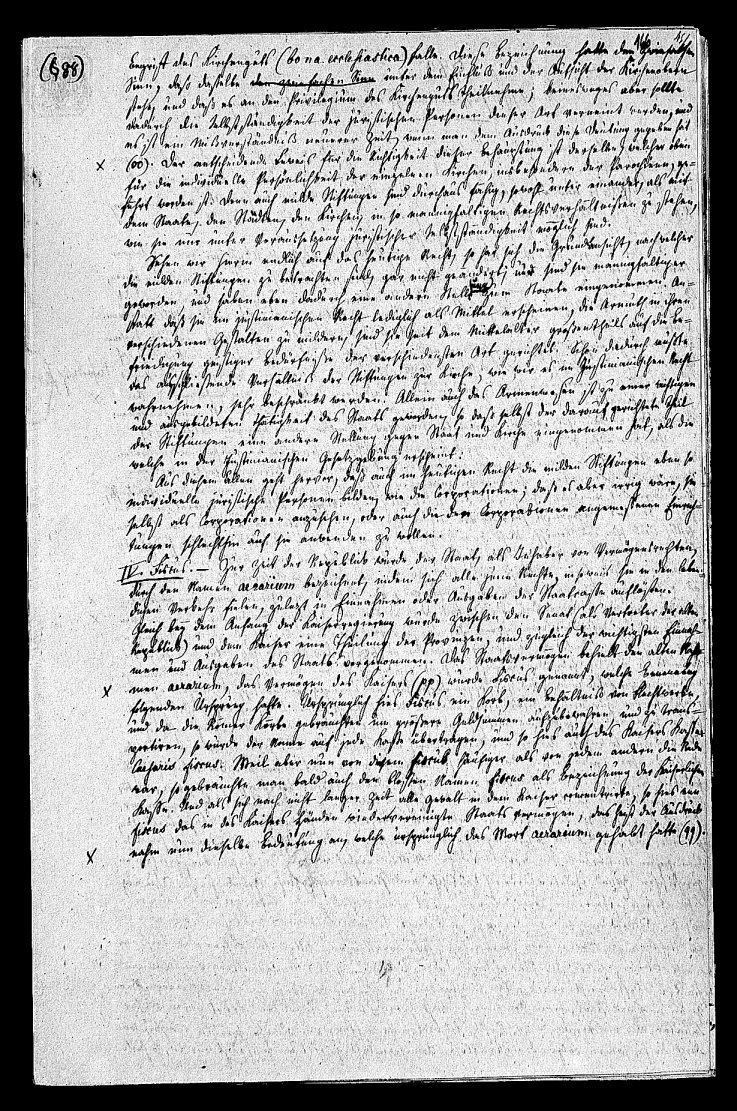 (§88)
146 151
Begriff des Kirchenguts (bona ecclesiastica) falle. Diese Bezeichnung hatte den zwiefachen
Sinn, daß dasselbe den zwiefachen Sinn unter dem Einfluß und der Aufsicht der Kirchenobern
stehe, und daß es an den Privilegien des Kirchenguts Theilnehme; keineswegs aber sollte
dadurch die Selbstständigkeit der juristischen Personen dieser Art verneint werden, und
es ist ein Mißverständniß neuerer Zeit, wenn man dem Ausdruck diese Deutung gegeben hat
(oo). Der entscheidende Beweis für die Richtigkeit dieser Behauptung ist derselbe, welcher oben
x
für die individuelle Persönlichkeit der einzelnen Kirchen, insbesondere der Parochieen, ge-
führt worden ist. Denn auch milde Stiftungen sind durchaus fähig, sowohl unter einander, als mit
dem Staate, den Städten, den Kirchen, in so mannigfaltigen Rechtsverhältnissen zu stehen,
wie sie nur unter Voraussetzung juristischer Selbstständigkeit möglich sind.
Sehen wir hierin endlich auf das heutige Recht, so hat sich die Grundansicht, nach welcher
die milden Stiftungen zu betrachten sind, gar nicht geändert; nur sind sie mannigfaltiger
geworden, und haben eben dadurch eine andere Stellung zum Staate eingenommen. An-
statt daß sie im justinianischen Recht lediglich als Mittel erscheinen, die Armuth in ihren
verschiedenen Gestalten zu mildern, sind sie seit dem Mittelalter großentheils auf die Be-
friedigung geistiger Bedürfnisse der verschiedensten Art gerichtet. Schon dadurch mußte
das ausschließende Verhältniß der Stiftungen zur Kirche, wie wir es im Justinianischen Recht
wahrnehmen, sehr beschränkt werden. Allein auch das Armenwesen ist zu einer wichtigen
und ausgebildeten Thätigkeit des Staats geworden, so daß selbst der darauf gerichtete Theil
der Stiftungen eine andere Stellung gegen Staat und Kirche eingenommen hat, als die
welche in der Justinianischen Gesetzgebung erscheint.
Aus diesem Allen geht hervor, daß auch im heutigen Recht die milden Stiftungen eben so
individuelle juristische Personen bilden, wie die Corporationen; daß es aber irrig wäre, sie
selbst als Corporationen anzusehen, oder auch die den Corporationen angemessenen Einrich-
tungen schlechthin auf sie anwenden zu wollen.
IV. Fiscus. — Zur Zeit der Republik wurde der Staat, als Inhaber von Vermögensrechten,
durch den Namen aerarium bezeichnet, indem sich alle seine Rechte, insoweit sie in den leben-
digen Verkehr fielen, zuletzt in Einnahmen oder Ausgaben der Staatscasse auflösten.
Gleich bey dem Anfang der Kaiserregierung wurde zwischen dem Senat (als Vertreter der alten
Republik) und dem Kaiser eine Theilung der Provinzen, und zugleich der wichtigsten Einnah-
men und Ausgaben des Staats vorgenommen. Das Staatsvermögen behielt den alten Na-
x
men aerarium, das Vermögen des Kaisers (pp) wurde Fiscus genannt, welche Benennung
folgenden Ursprung hatte. Ursprünglich hies Fiscus ein Korb, ein Behältniß von Flechtwerk,
und da die Römer Körbe gebrauchten um größere Geldsummen aufzubewahren, und zu trans-
portiren, so wurde der Name auf jede Kasse übertragen, und so hies auch des Kaisers Kasse
Caesaris fiscus. Weil aber nun von diesem fiscus häufiger als von jedem andern die Rede
war, so gebrauchte man bald auch den bloßen Namen fiscus als Bezeichnung der kaiserlichen
Kasse. Und als sich nach nicht langer Zeit alle Gewalt in dem Kaiser concentrirte, so hies nun
fiscus das in des Kaisers Händen wiedervereinigte Staatsvermögen, das heißt der Ausdruck
x
nahm nun dieselbe Bedeutung an, welche ursprünglich das Wort aerarium gehabt hatte (qq).